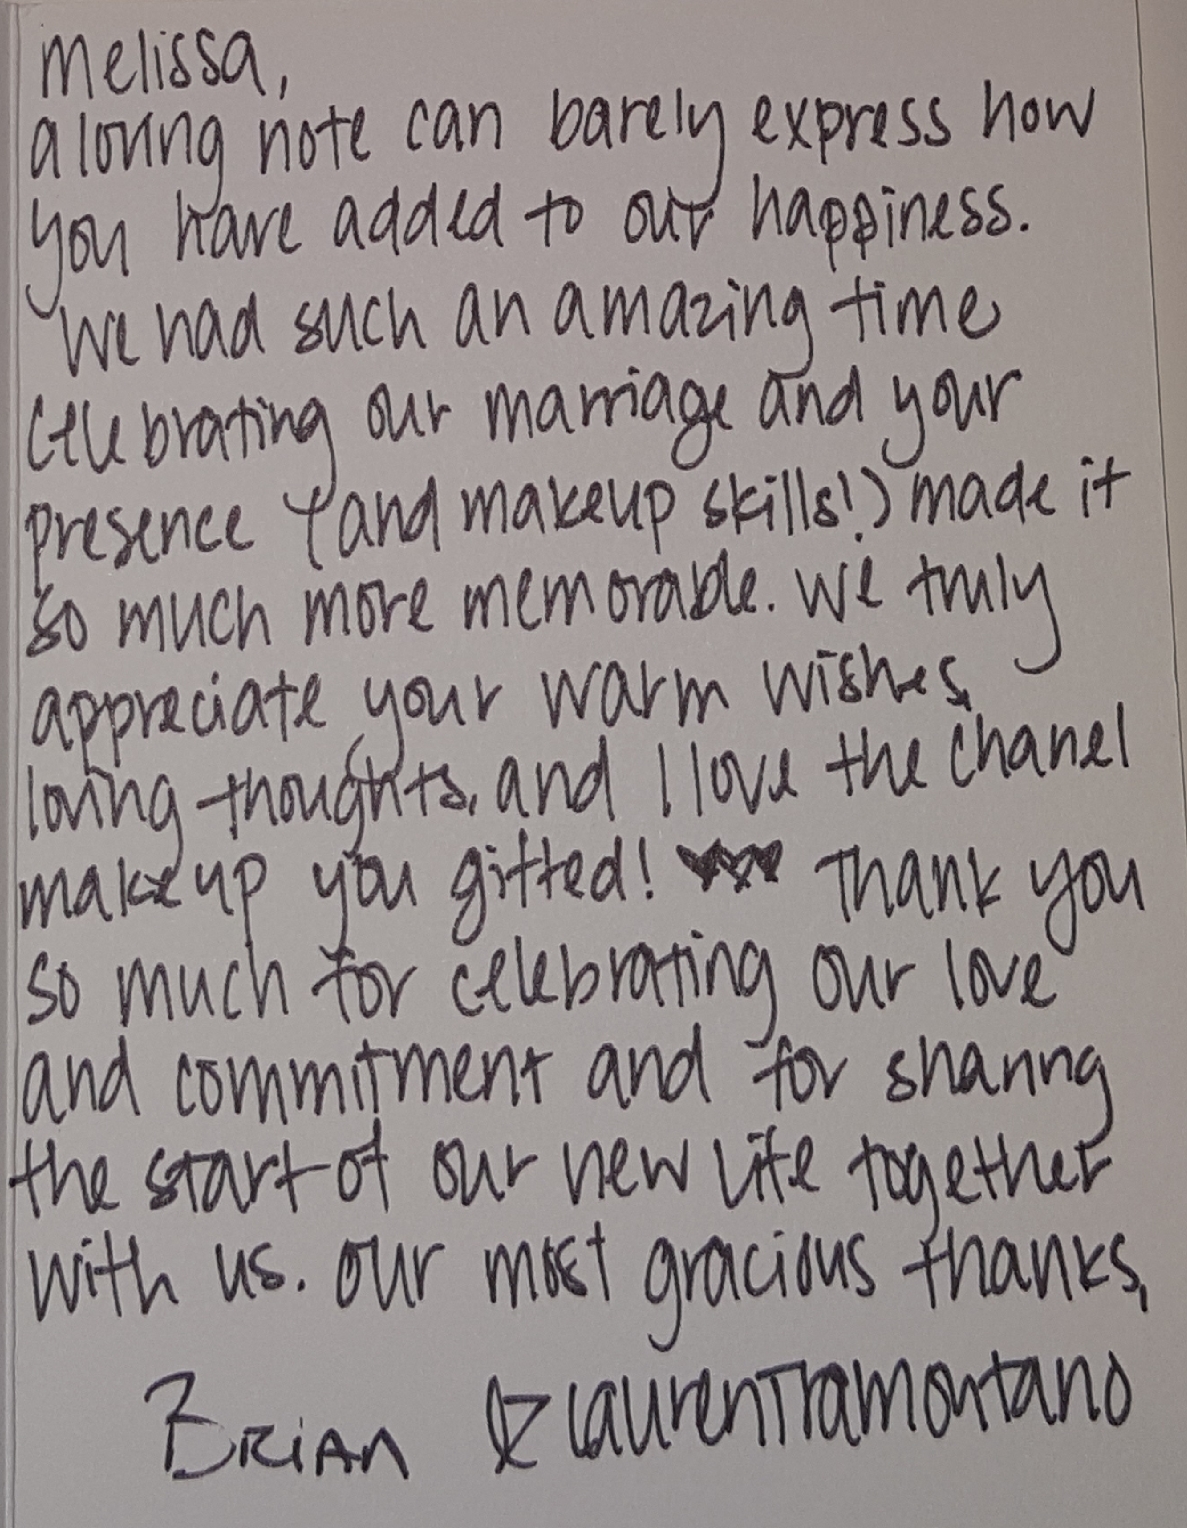 Melissa,
a loving note can barely express how
you have added to our happiness.
We had such an amazing time
celebrating our marriage and your
presence (and makeup skills!) made it
so much more memorable. We truly
appreciate your warm wishes,
loving thoughts, and I love the Chanel
makeup you gifted! ♥♥♥ Thank you
so much for celebrating our love
and commitment and for sharing
the start of our new life together
with us. Our most gracious thanks,
BRiAN & Lauren Tramontano